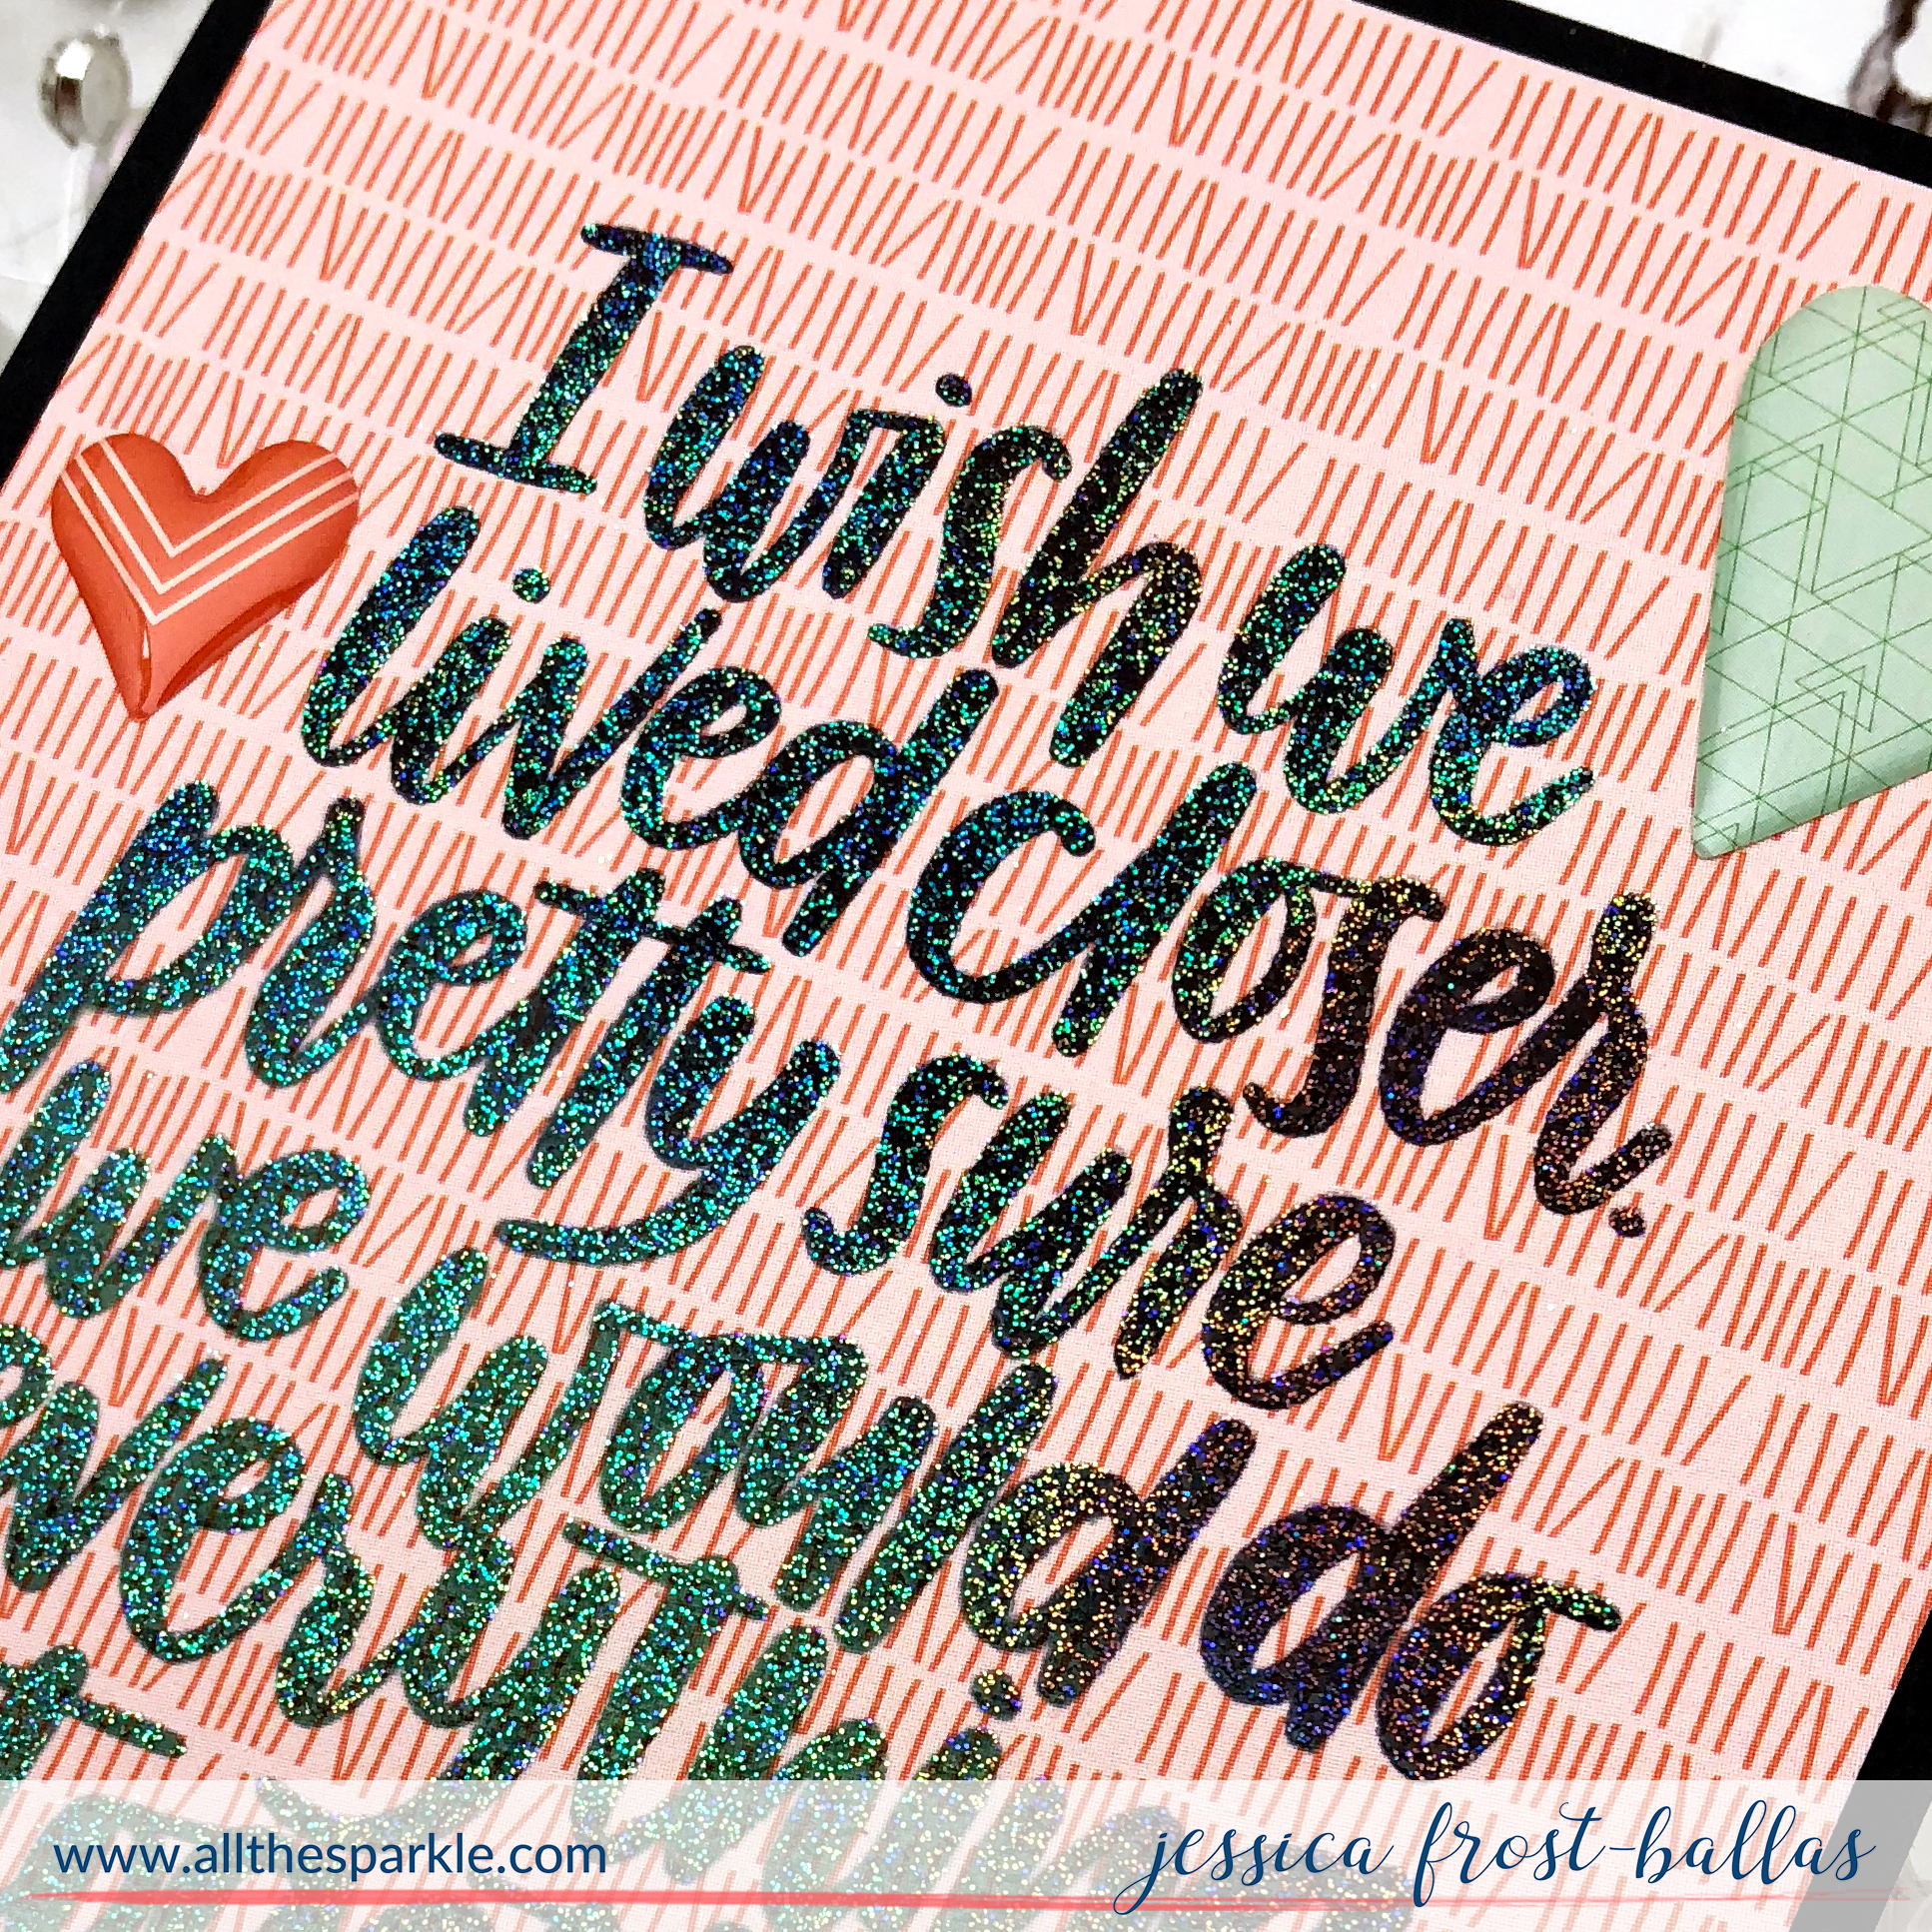 I wish we
lived closer.
pretty sure
we would do
everythi
t
www.allthesparkle.com
jessica frost-ballas